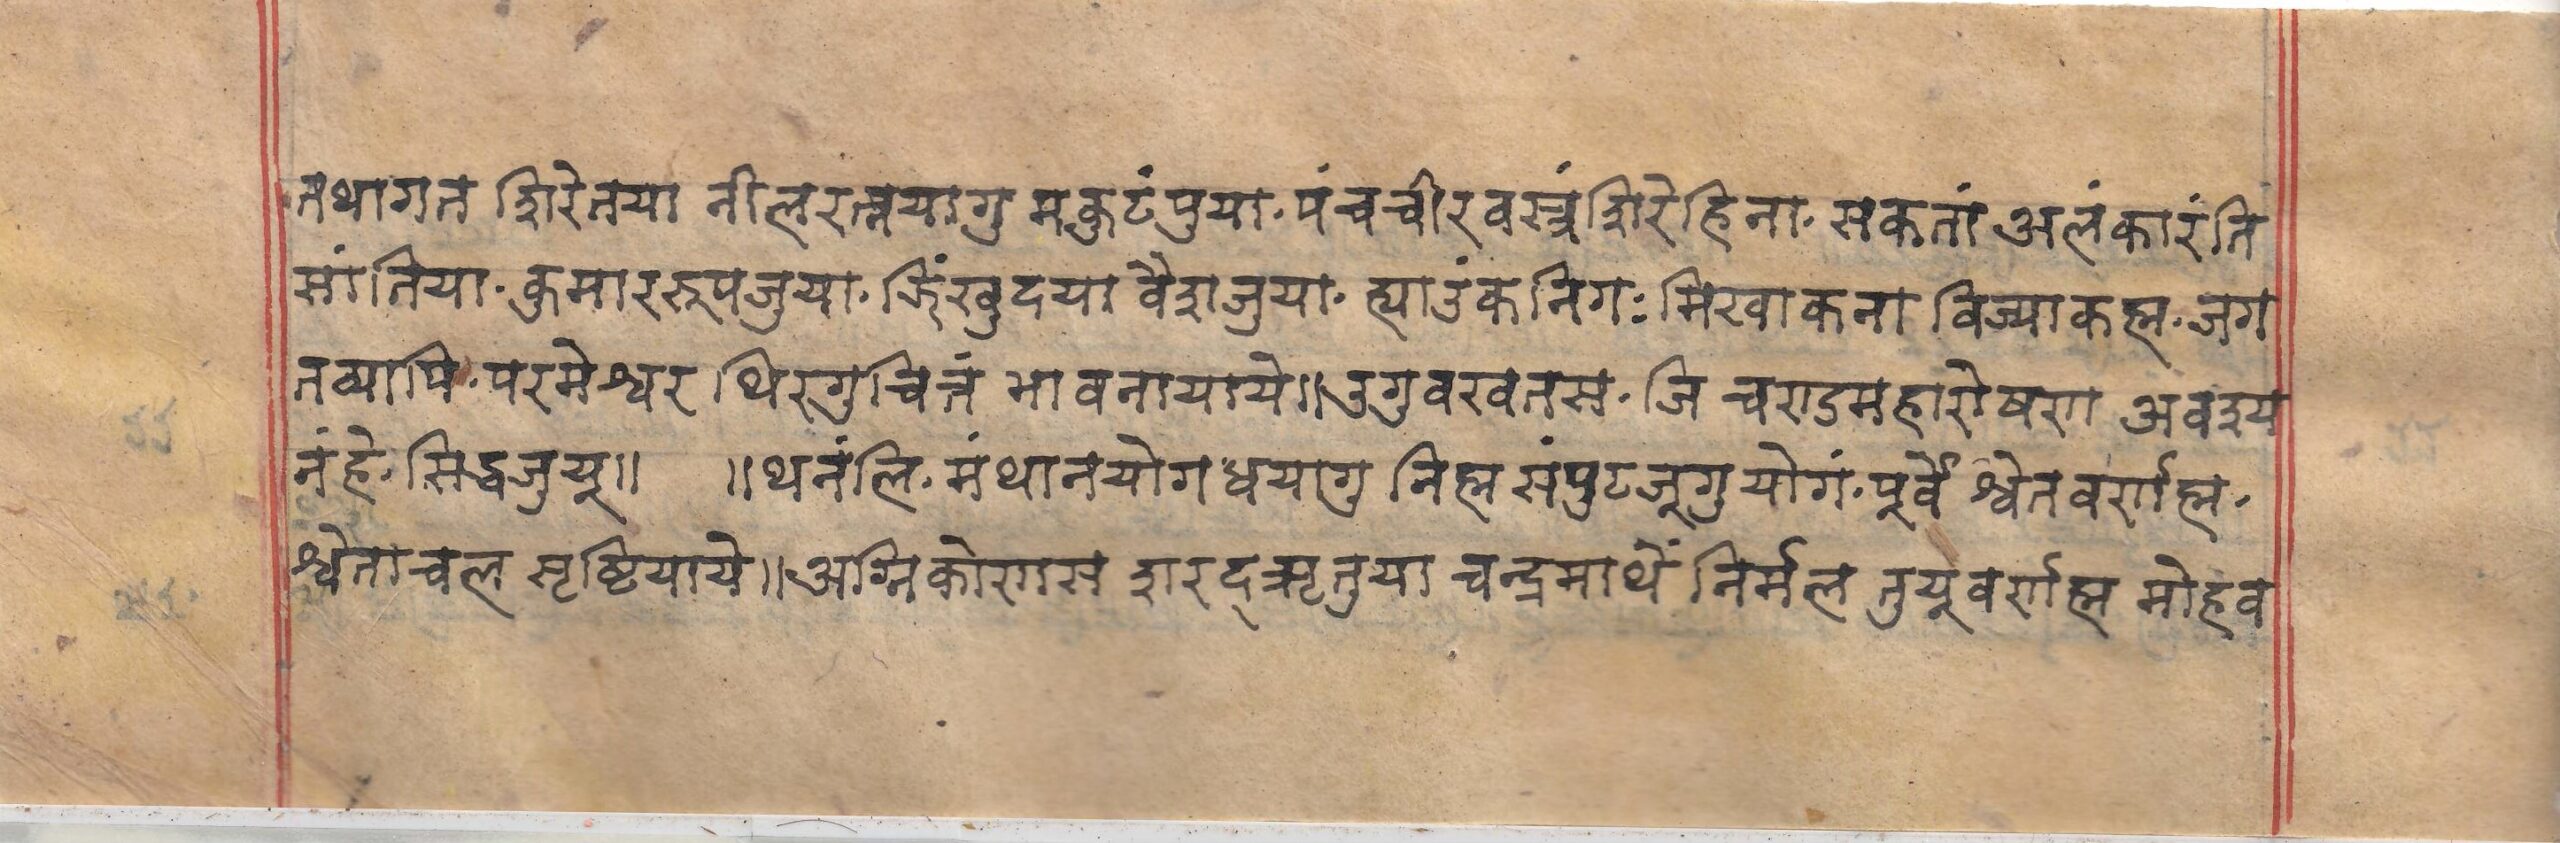 तथागत शिरेतया नीलरत्नयागु मकुटंपुया॰ पंचचीरवस्त्रंशिरेहिना॰ सकतां अलंकारंति
सांतिया॰ कुमाररूपजुया॰ झिंखुदया वैशजुया॰ ह्याउंकनिगः मिखाकना विज्याकह्म॰ जग
तव्यापि॰ परमेश्वर थिरगुचित्तं भावनायाये॥ उगुवखतस॰ जि चण्डमहारोषण अवश्य
नंहे॰ सिद्धजुयू॥ ॥थनंलि॰ मंथानयोगधयागु निह्म संपुटजूगुयोगं॰ पूर्वे श्वेतवर्णह्म॰
श्वेताचल सृष्टियाये॥ अग्निकोणस शरदऋतुया चन्द्रमाथें निर्मल तुयूवर्णह्म मोहव